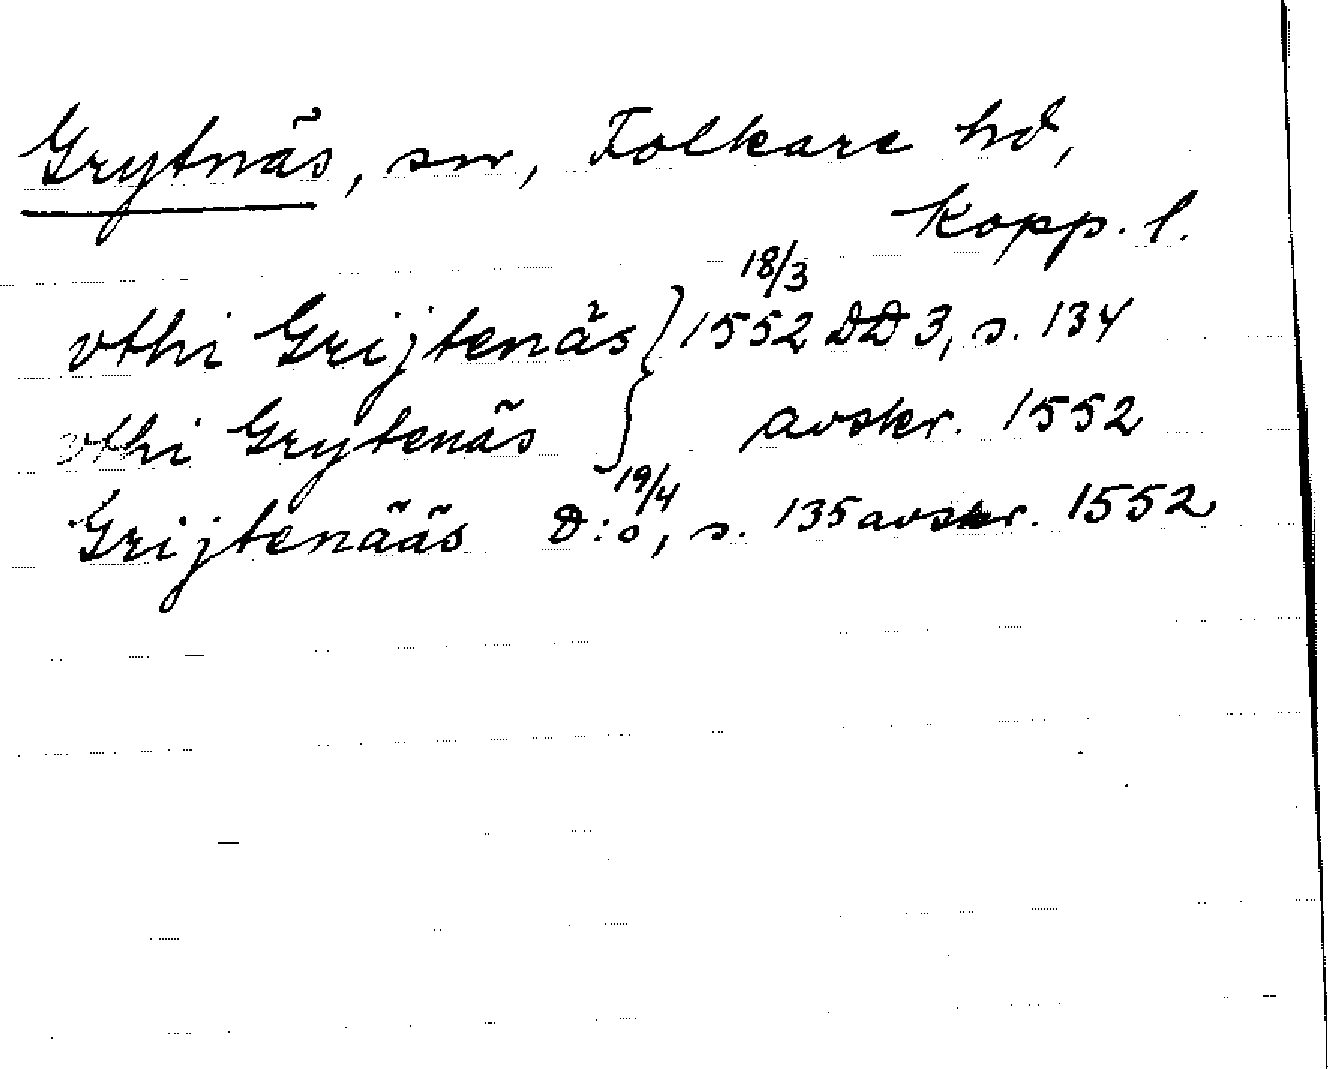 Grytnäs, sn, Folkare hd,
Kopp. l.
vthi Grijtenäs } 18/3 1552 DD 3, s. 134
vthi Grytenäs } avskr. 1552
Grijtenääs 19/4 D:o, s. 135 avskr. 1552